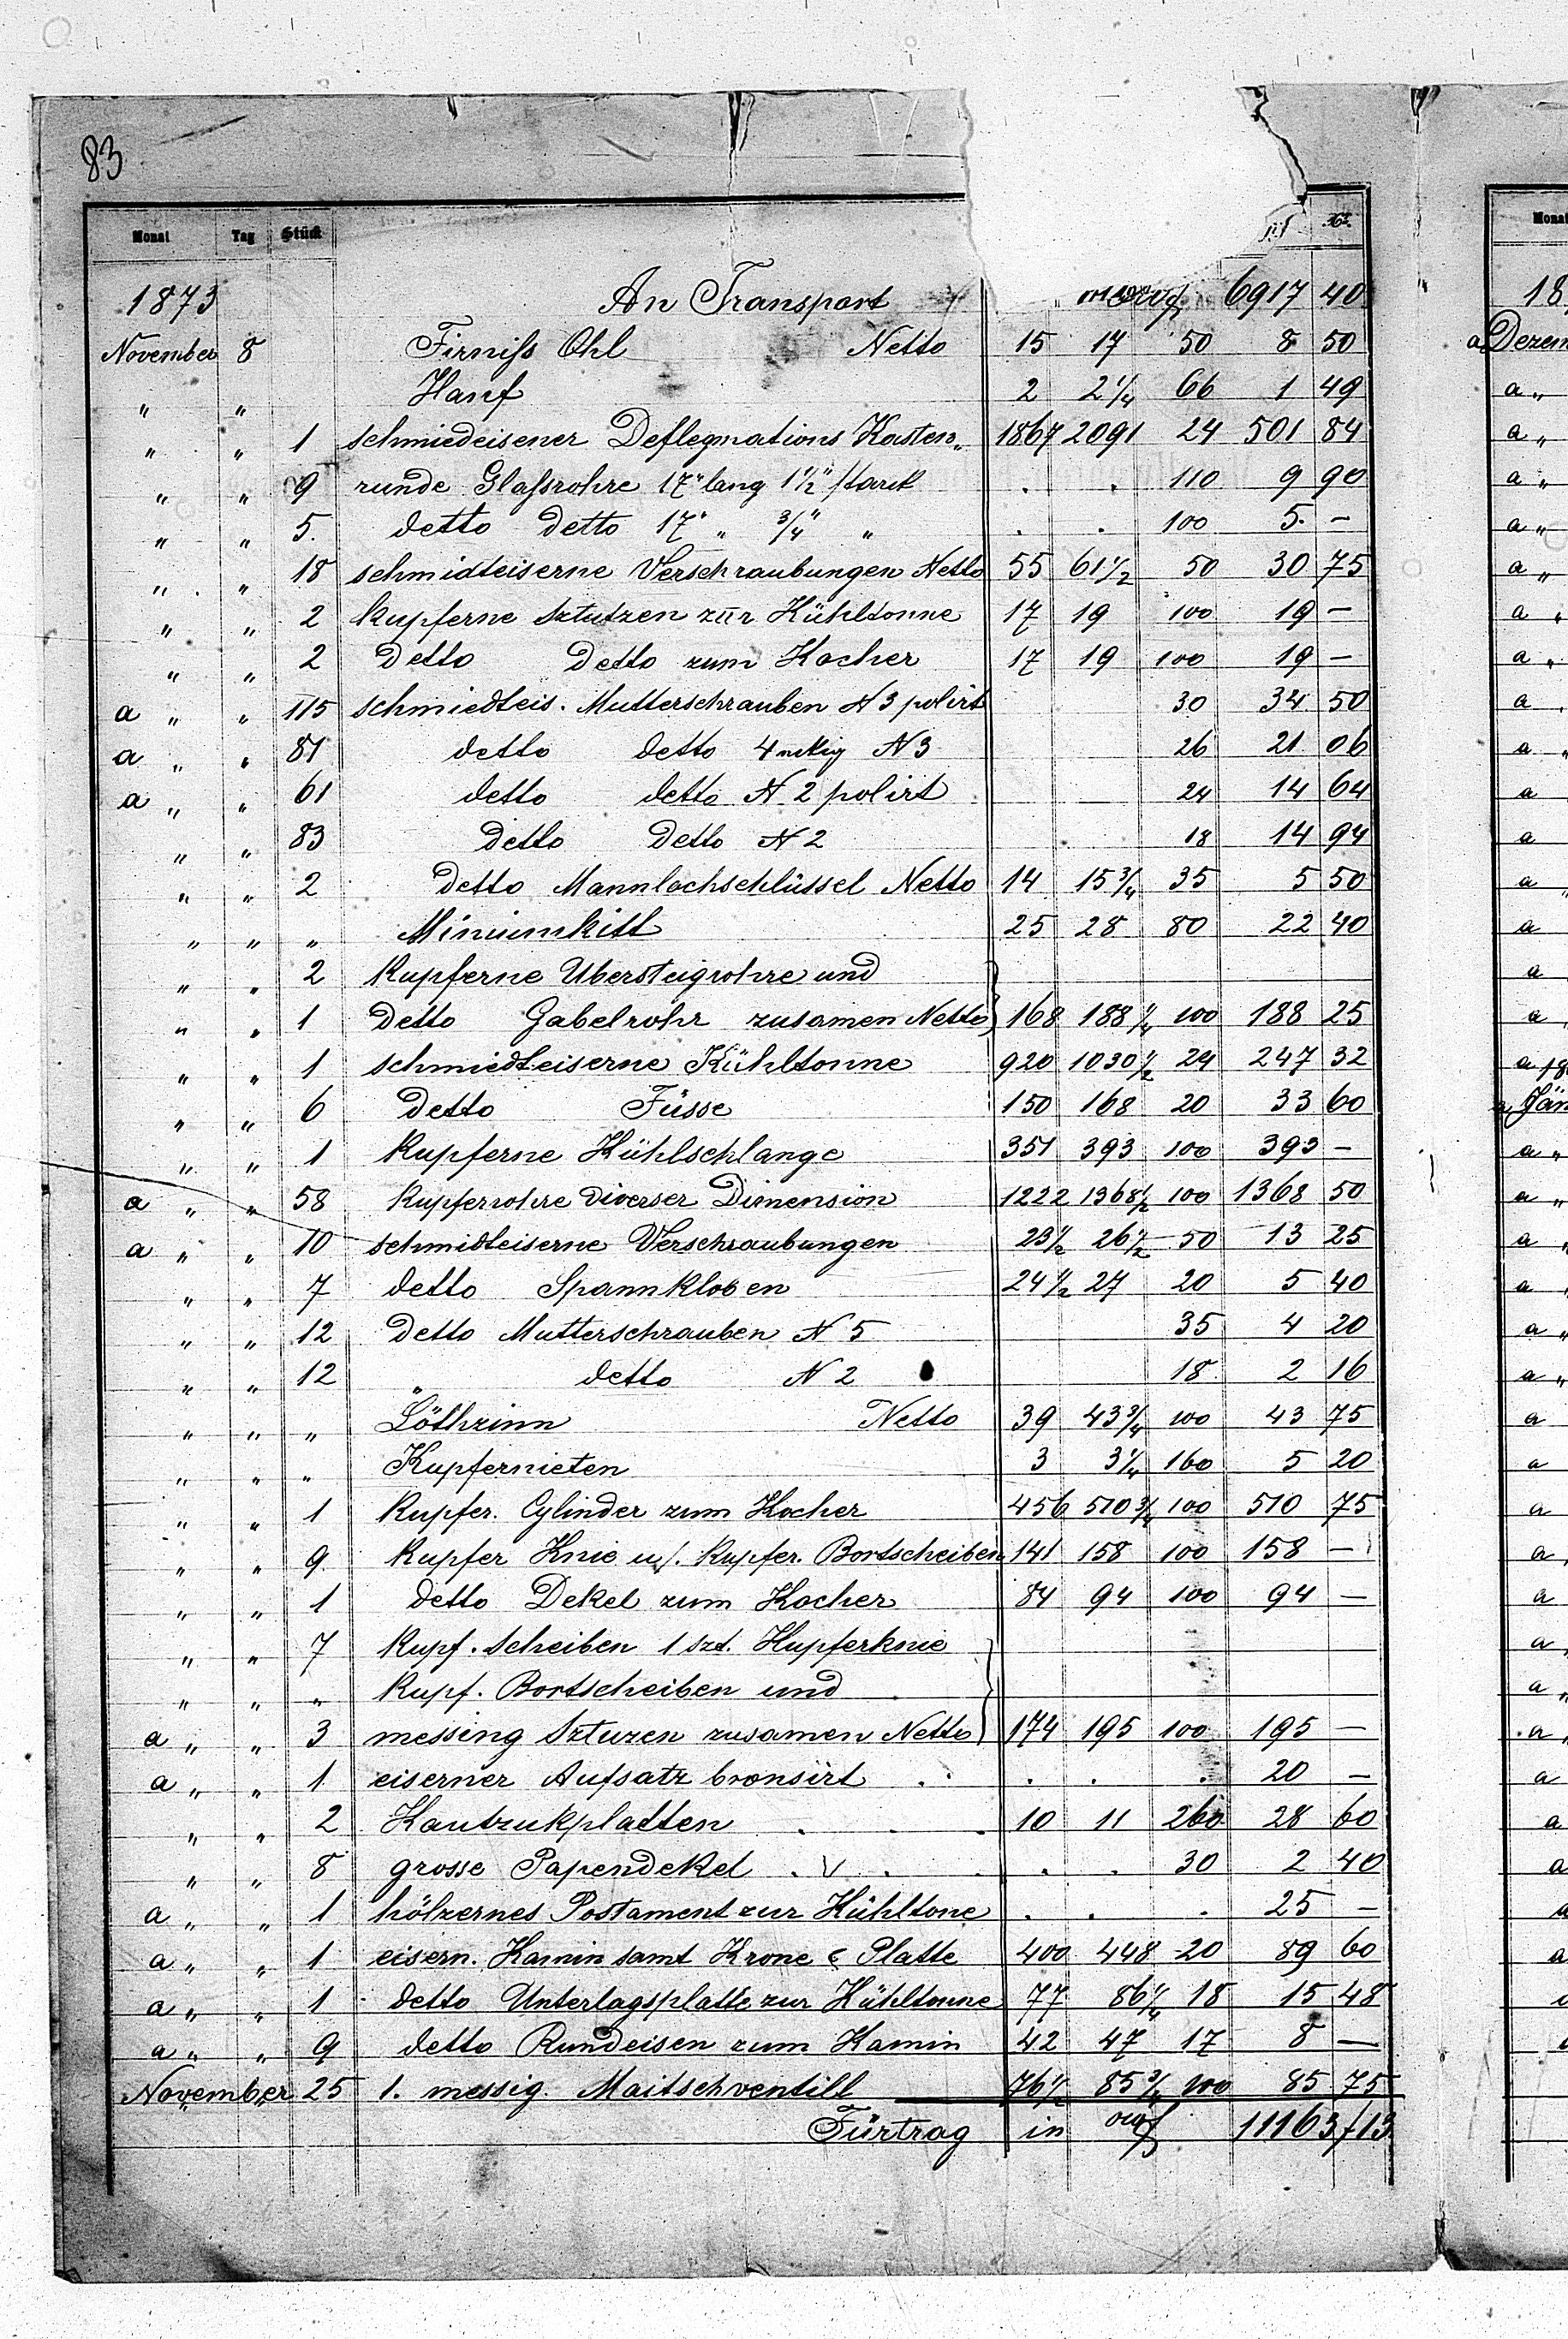 83
Monat Tag Stück Xr.
1873 An Transport 6917 40
November 8 Firniss Ohl Netto 15 17 50 8 50
" " Hanf 2 2 1/4 66 1 49
" " 1 schmiedeisener Deflegmations Kasten 1867 2091 24 501 84
" " 9 runde Glassrohre 17" lang 1 1/2" stark . . 110 9 90
" " 5. detto detto 17" " 3/4" " . . 100 5. –
" " 18 schmidteiserne Verschraubungen Netto 55 61 1/2 50 30 75
" " 2 kupferne Sztutzen zur Kühltonne 17 19 100 19 –
" " 2 Detto Detto zum Kocher 17 19 100 19 –
a " " 115 schmiedteis. Mutterschrauben N 3 polirt 30 34 50
a " " 81 detto detto 4 N 3 26 21 06
a " " 61 detto detto N 2 polirt 24 14 64
" " 83 Detto Detto N 2 18 14 94
" " 2 Detto Mannlochschlüssel Netto 14 15 3/4 35 5 50
" " " Miniumkitt 25 28 80 22 40
" " 2 Kupferne Ubersteigrohre und
" " 1 Detto Gabelrohr zusamen Netto 168 188 1/4 100 188 25
" " 1 schmiedteiserne Kühltonne 920 1030 1/2 24 247 32
" " 6 Detto Füsse 150 168 20 33 60
" " 1 Kupferne Kühlschlange 351 393 100 393 –
a " " 58 Kupferrohre Diverser Dimension 1222 1368 1/2 100 1368 50
a " " 10 schmidteiserne Verschraubungen 23 1/2 26 1/2 50 13 25
" " 7 detto Spannkloben 24 1/2 27 20 5 40
" " 12 Detto Mutterschrauben N 5 35 4 20
" " 12 " detto N 2 18 2 16
" " " Löthzinn Netto 39 43 3/4 100 43 75
" " " Kupfernieten 3 3 1/4 160 5 20
" " 1 Kupfer. Cylinder zum Kocher 456 510 3/4 100 510 75
" " 9 Kupfer Knie u/. Kupfer. Bortscheiben 141 158 100 158 –
" " 1 Detto Dekel zum Kocher 84 94 100 94 –
" " 7 Kupf. Scheiben 1 szt. Kupferknie
" " " Kupf. Bortscheiben und
a " " 3 messing Sztuzen zusamen Netto 174 195 100 195 –
a " " 1 eiserner Aufsatz bronsirt . . . . . 20 –
" " 2 Kautzukplatten . . . 10 11 260 28 60
" " 8 grosse Papendekel . . . . . 30 2 40
a " " 1 hölzernes Postament zur Kühltone . . . 25 –
a " " 1 eisern. Kamin samt Krone & Platte 400 448 20 89 60
a " " 1 detto Unterlagsplatte zur Kühltonne 77 86 1/4 18 15 48
a " " 9 detto Rundeisen zum Kamin 42 47 17 8 –
November 25 1. messig. Maitschventill 76 1/2 85 3/4 100 85 75
Fürtrag in 11163/13
Monat
18
a Dezem
a "
a "
a "
a "
a "
a "
a "
a
a "
a
a
a
a
a
a
a
Jän
a "
a "
a "
a "
a "
a "
a
a
a
a
a
a
a "
a
a
a
a
a